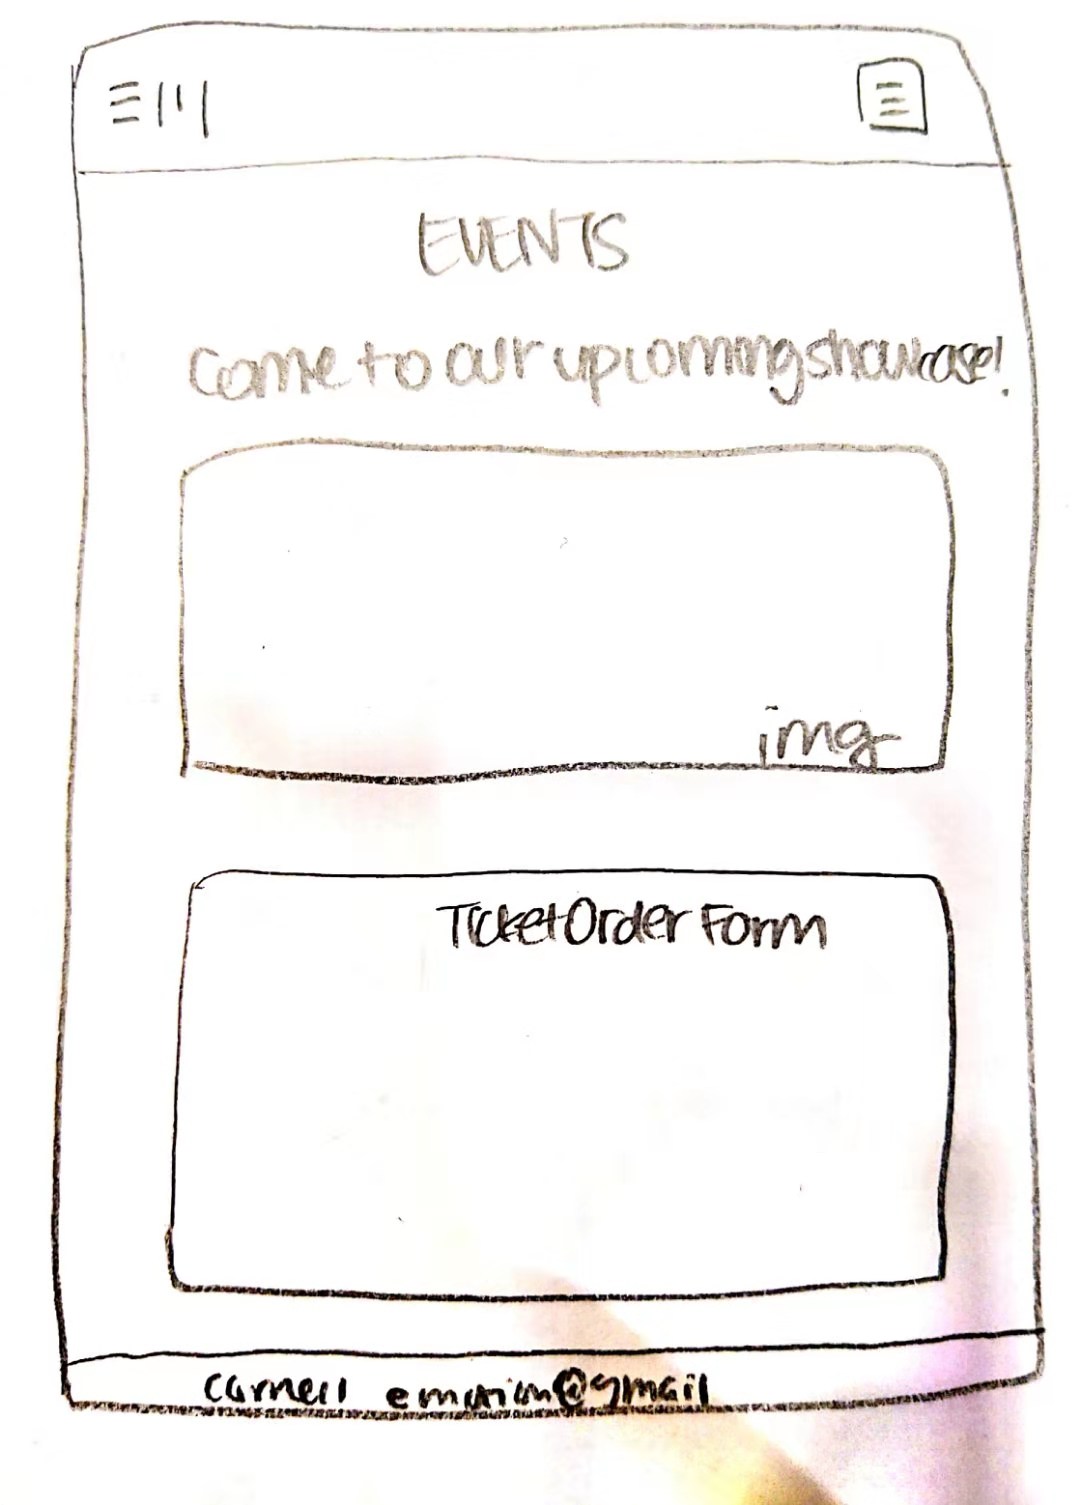 EVENTS
Come to our upcoming showcase!
img
Ticket Order Form
emotion@gmail